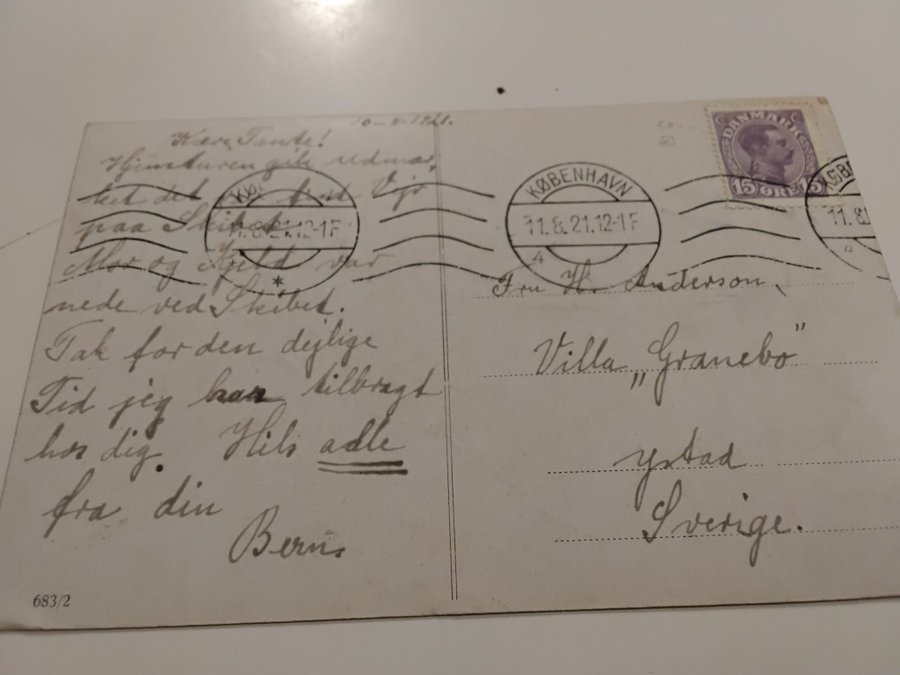 10-8-1921.
Kære Tante!
Hjemturen gik udmær
ket det
paa Skibet
Mor og Kjeld var
nede ved Skibet.
Tak for den dejlige
Tid jeg har tilbragt
hos dig. Hils alle
fra din
Bern.
683/2
DANMARK
15 ØRE 15
KØBENHAVN
11.8.21.12-1F
4
KØBENHAVN
11.8.21.12-1F
*
KØBE
11.8
Fru H. Anderson,
Villa „Granebo”
Ystad
Sverige.